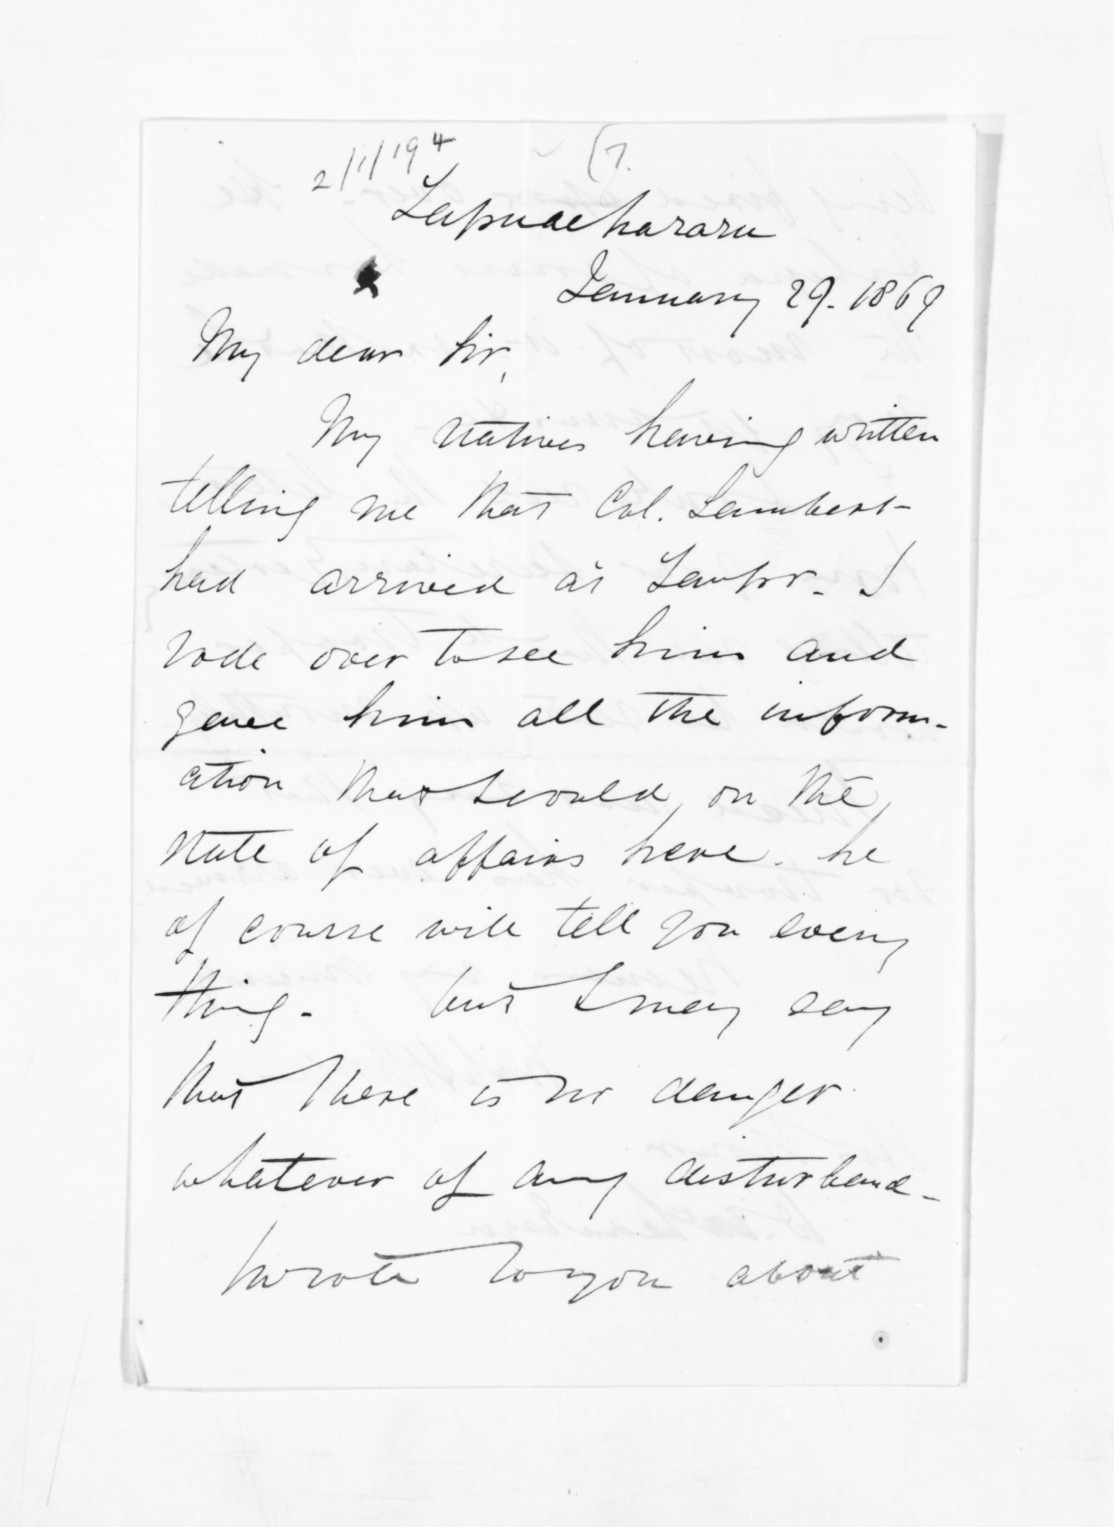 2/1/194 (7.
Tapuaeharuru
January 29. 1869
My dear Sir,
My natives having written
telling me that Col. Lambert
had arrived at Taupo. I
rode over to see him and
gave him all the inform-
ation that I could, on the
state of affairs here. he
of course will tell you every
thing. but I may say
that there is no danger
whatever of any disturbance
I wrote to you about